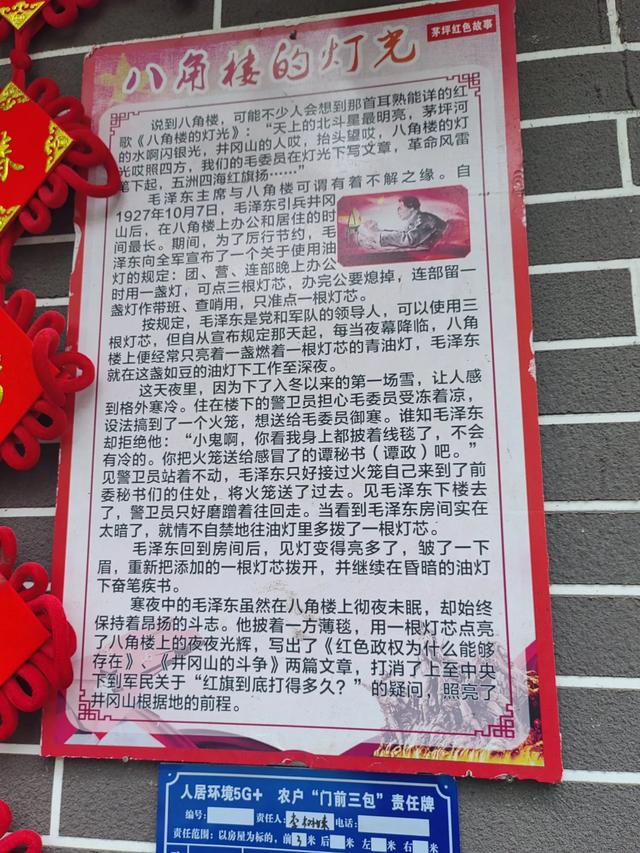 八角楼的灯光
茅坪红色故事
说到八角楼，可能不少人会想到那首耳熟能详的红
歌《八角楼的灯光》：“天上的北斗星最明亮，茅坪河
的水啊闪银光，井冈山的人哎，抬头望哎，八角楼的灯
光哎照四方，我们的毛委员在灯光下写文章，革命风雷
笔下起，五洲四海红旗扬……”
毛泽东主席与八角楼可谓有着不解之缘。自
1927年10月7日，毛泽东引兵井冈
山后，在八角楼上办公和居住的时
间最长。期间，为了厉行节约，毛
泽东向全军宣布了一个关于使用油
灯的规定：团、营、连部晚上办公
时用一盏灯，可点三根灯芯，办完公要熄掉，连部留一
盏灯作带班、查哨用，只准点一根灯芯。
按规定，毛泽东是党和军队的领导人，可以使用三
根灯芯，但自从宣布规定那天起，每当夜幕降临，八角
楼上便经常只亮着一盏燃着一根灯芯的青油灯，毛泽东
就在这盏如豆的油灯下工作至深夜。
这天夜里，因为下了入冬以来的第一场雪，让人感
到格外寒冷。住在楼下的警卫员担心毛委员受冻着凉，
设法搞到了一个火笼，想送给毛委员御寒。谁知毛泽东
却拒绝他：“小鬼啊，你看我身上都披着线毯了，不会
有冷的。你把火笼送给感冒了的谭秘书（谭政）吧。”
见警卫员站着不动，毛泽东只好接过火笼自己来到了前
委秘书们的住处，将火笼送了过去。见毛泽东下楼去
了，警卫员只好磨蹭着往回走。当看到毛泽东房间实在
太暗了，就情不自禁地往油灯里多拨了一根灯芯。
毛泽东回到房间后，见灯变得亮多了，皱了一下
眉，重新把添加的一根灯芯拨开，并继续在昏暗的油灯
下奋笔疾书。
寒夜中的毛泽东虽然在八角楼上彻夜未眠，却始终
保持着昂扬的斗志。他披着一方薄毯，用一根灯芯点亮
了八角楼上的夜夜光辉，写出了《红色政权为什么能够
存在》、《井冈山的斗争》两篇文章，打消了上至中央
下到军民关于“红旗到底打得多久？”的疑问，照亮了
井冈山根据地的前程。
人居环境5G+ 农户“门前三包”责任牌
编号： 责任人： 电话：
责任范围：以房屋为标的，前3米 后 米 左 米 右 米